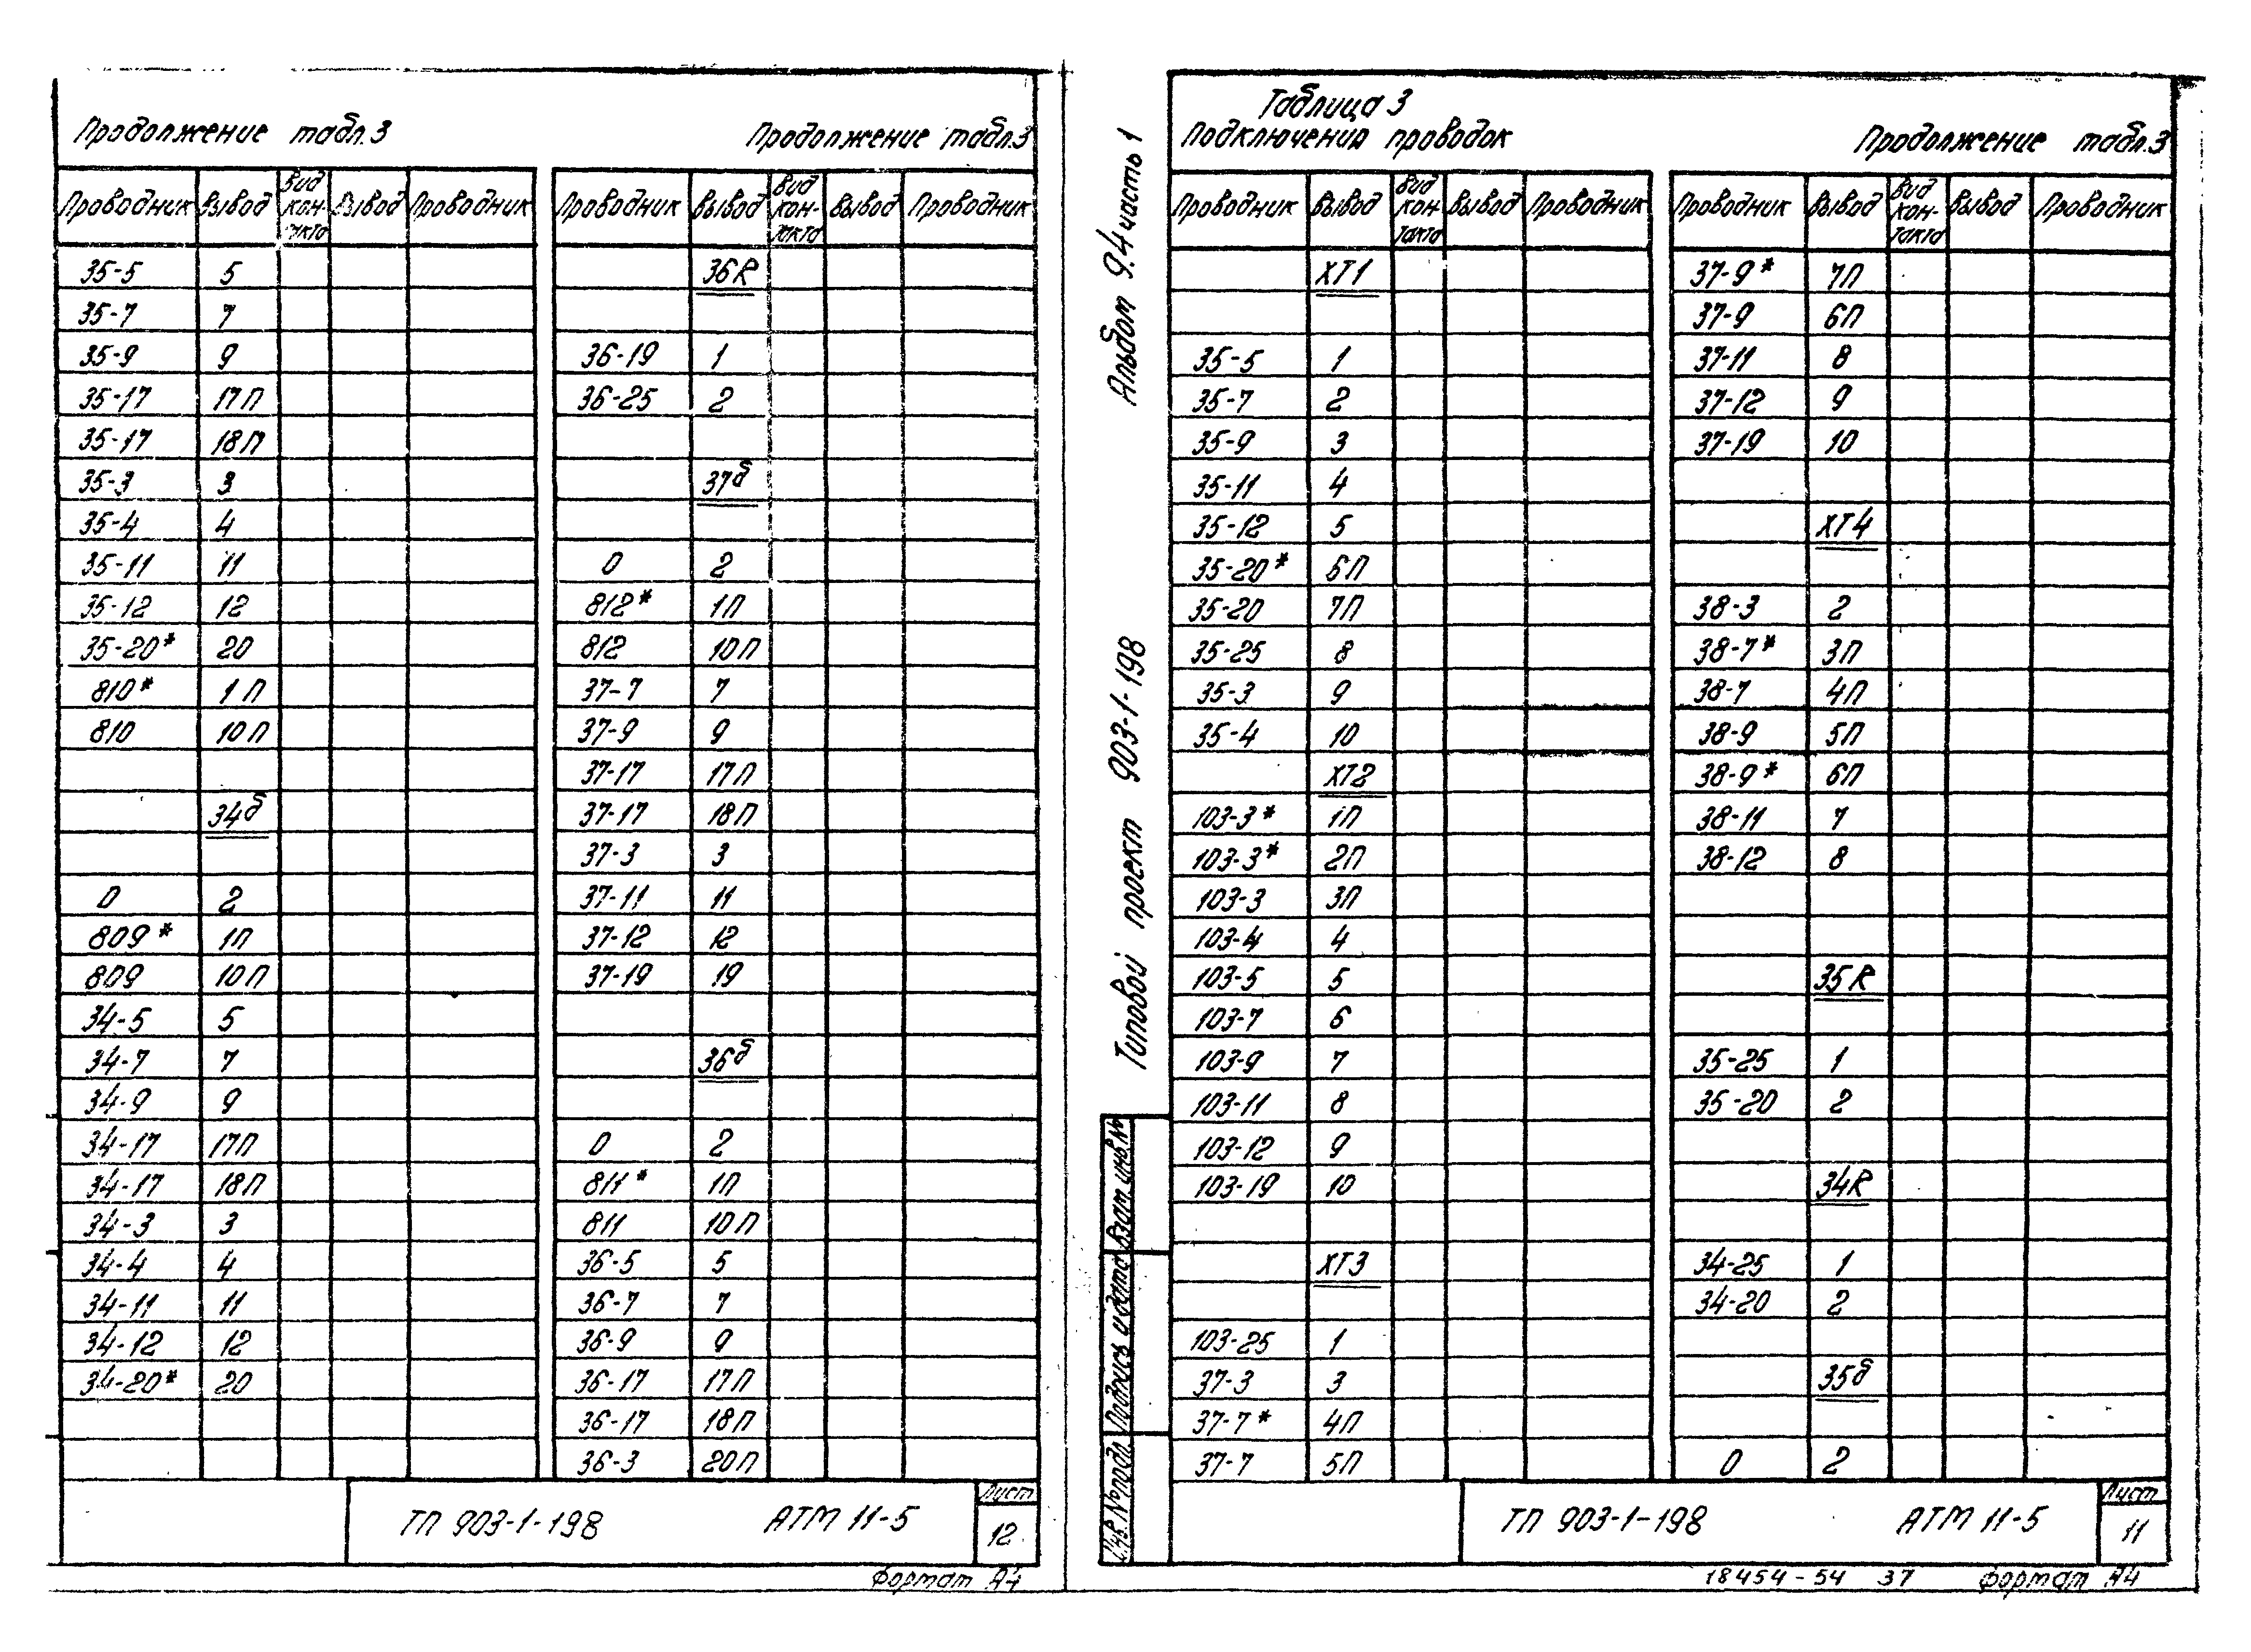 Продолжение табл.3
Продолжение табл.3
Проводник Вывод Вид контакта Вывод Проводник
35-5 5
35-7 7
35-9 9
35-17 17П
35-17 18П
35-3 3
35-4 4
35-11 11
35-12 12
35-20* 20
810* 1П
810 10П
34б
0 2
809* 1П
809 10П
34-5 5
34-7 7
34-9 9
34-17 17П
34-17 18П
34-3 3
34-4 4
34-11 11
34-12 12
34-20* 20
Проводник Вывод Вид контакта Вывод Проводник
36R
36-19 1
36-25 2
37б
0 2
812* 1П
812 10П
37-7 7
37-9 9
37-17 17П
37-17 18П
37-3 3
37-11 11
37-12 12
37-19 19
36б
0 2
811* 1П
811 10П
36-5 5
36-7 7
36-9 9
36-17 17П
36-17 18П
36-3 20П
ТП 903-1-198 АТМ 11-5
Лист
12
Формат А4
Альбом 9.4 часть 1
Типовой проект 903-1-198
Взам. инв.№
Подпись и дата
Инв.№ подл.
Таблица 3
Подключения проводок
Продолжение табл.3
Проводник Вывод Вид контакта Вывод Проводник
XT1
35-5 1
35-7 2
35-9 3
35-11 4
35-12 5
35-20* 6П
35-20 7П
35-25 8
35-3 9
35-4 10
XT2
103-3* 1П
103-3* 2П
103-3 3П
103-4 4
103-5 5
103-7 6
103-9 7
103-11 8
103-12 9
103-19 10
XT3
103-25 1
37-3 3
37-7* 4П
37-7 5П
Проводник Вывод Вид контакта Вывод Проводник
37-9* 7П
37-9 6П
37-11 8
37-12 9
37-19 10
XT4
38-3 2
38-7* 3П
38-7 4П
38-9 5П
38-9* 6П
38-11 7
38-12 8
35R
35-25 1
35-20 2
34R
34-25 1
34-20 2
35б
0 2
ТП 903-1-198 АТМ 11-5
Лист
11
18454-54 37 Формат А4